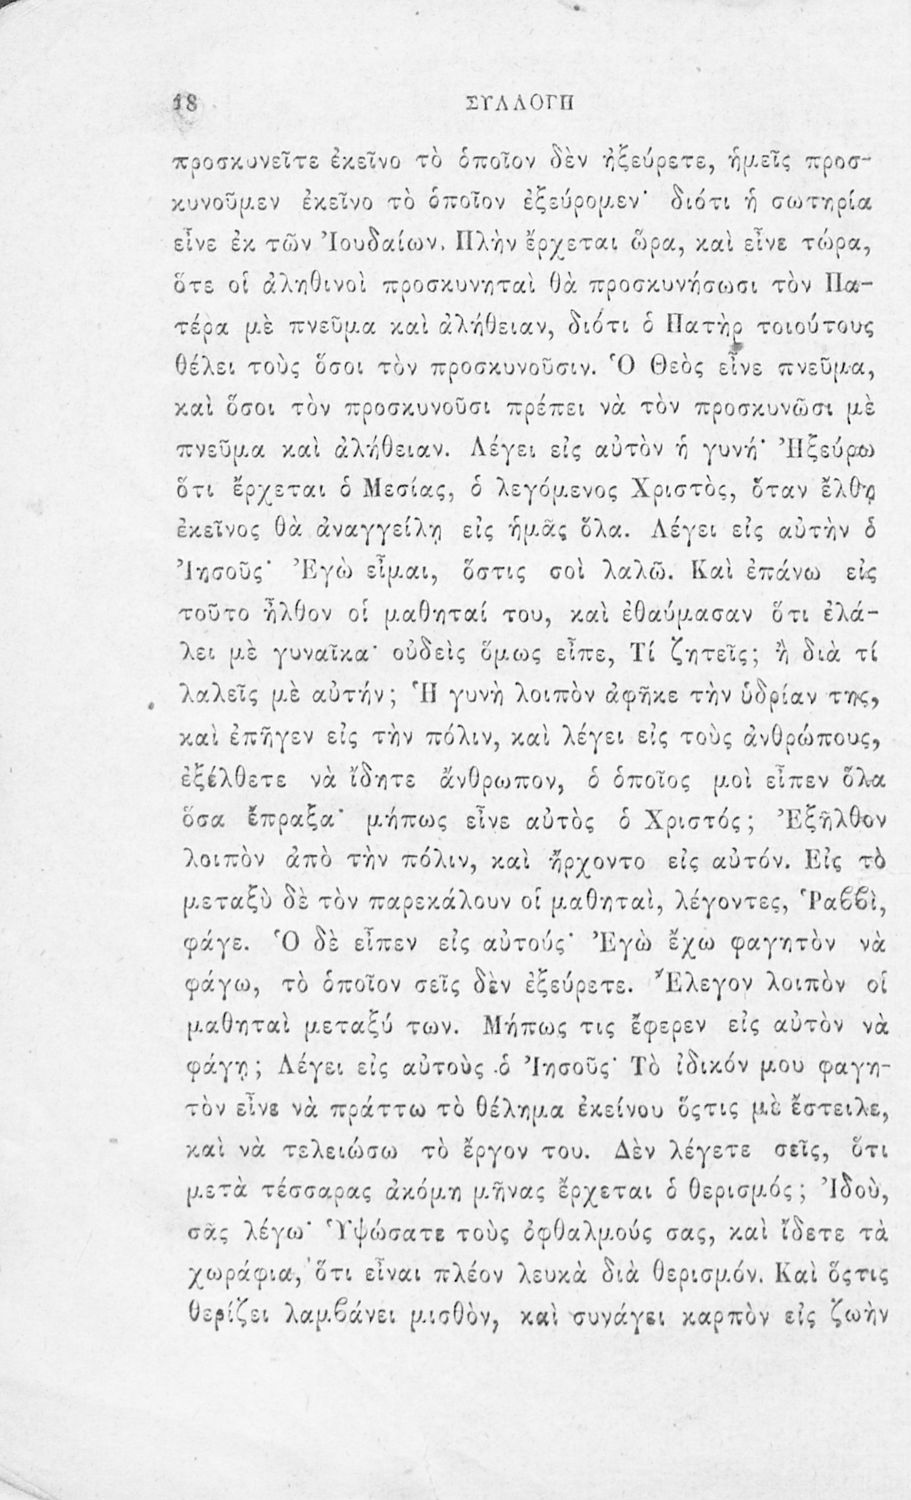 18 ΣΥΛΛΟΓΗ
προσκυνεῖτε ἐκεῖνο τὸ ὁποῖον δὲν ἠξεύρετε, ἡμεῖς προσ-
κυνοῦμεν ἐκεῖνο τὸ ὁποῖον ἐξεύρομεν· διότι ἡ σωτηρία
εἶνε ἐκ τῶν Ἰουδαίων. Πλὴν ἔρχεται ὥρα, καὶ εἶνε τώρα,
ὅτε οἱ ἀληθινοὶ προσκυνηταὶ θὰ προσκυνήσωσι τὸν Πα-
τέρα μὲ πνεῦμα καὶ ἀλήθειαν, διότι ὁ Πατὴρ τοιούτους
θέλει τοὺς ὅσοι τὸν προσκυνοῦσιν. Ὁ Θεὸς εἶνε πνεῦμα,
καὶ ὅσοι τὸν προσκυνοῦσι πρέπει νὰ τὸν προσκυνῶσι μὲ
πνεῦμα καὶ ἀλήθειαν. Λέγει εἰς αὐτὸν ἡ γυνή· Ἠξεύρω
ὅτι ἔρχεται ὁ Μεσίας, ὁ λεγόμενος Χριστὸς, ὅταν ἔλθῃ
ἐκεῖνος θὰ ἀναγγείλῃ εἰς ἡμᾶς ὅλα. Λέγει εἰς αὐτὴν ὁ
Ἰησοῦς· Ἐγὼ εἶμαι, ὅστις σοὶ λαλῶ. Καὶ ἐπάνω εἰς
τοῦτο ἦλθον οἱ μαθηταί του, καὶ ἐθαύμασαν ὅτι ἐλά-
λει μὲ γυναῖκα· οὐδεὶς ὅμως εἶπε, Τί ζητεῖς; ἢ διὰ τί
λαλεῖς μὲ αὐτήν; Ἡ γυνὴ λοιπὸν ἀφῆκε τὴν ὑδρίαν της,
καὶ ἐπῆγεν εἰς τὴν πόλιν, καὶ λέγει εἰς τοὺς ἀνθρώπους,
ἐξέλθετε νὰ ἴδητε ἄνθρωπον, ὁ ὁποῖος μοὶ εἶπεν ὅλα
ὅσα ἔπραξα· μήπως εἶνε αὐτὸς ὁ Χριστός; Ἐξῆλθον
λοιπὸν ἀπὸ τὴν πόλιν, καὶ ἤρχοντο εἰς αὐτόν. Εἰς τὸ
μεταξὺ δὲ τὸν παρεκάλουν οἱ μαθηταὶ, λέγοντες, Ῥαϐϐὶ,
φάγε. Ὁ δὲ εἶπεν εἰς αὐτούς· Ἐγὼ ἔχω φαγητὸν νὰ
φάγω, τὸ ὁποῖον σεῖς δὲν ἐξεύρετε. Ἔλεγον λοιπὸν οἱ
μαθηταὶ μεταξύ των. Μήπως τις ἔφερεν εἰς αὐτὸν νὰ
φάγῃ; Λέγει εἰς αὐτοὺς ὁ Ἰησοῦς· Τὸ ἰδικόν μου φαγη-
τὸν εἶνε νὰ πράττω τὸ θέλημα ἐκείνου ὅςτις μὲ ἔστειλε,
καὶ νὰ τελειώσω τὸ ἔργον του. Δὲν λέγετε σεῖς, ὅτι
μετὰ τέσσαρας ἀκόμη μῆνας ἔρχεται ὁ θερισμός; Ἰδοὺ,
σᾶς λέγω· Ὑψώσατε τοὺς ὀφθαλμούς σας, καὶ ἴδετε τὰ
χωράφια, ὅτι εἶναι πλέον λευκὰ διὰ θερισμόν. Καὶ ὅςτις
θερίζει λαμϐάνει μισθὸν, καὶ συνάγει καρπὸν εἰς ζωὴν